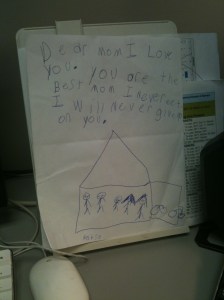 Dear mom I Love
you. you are the
Best mom I never met
I will never give up
on you.